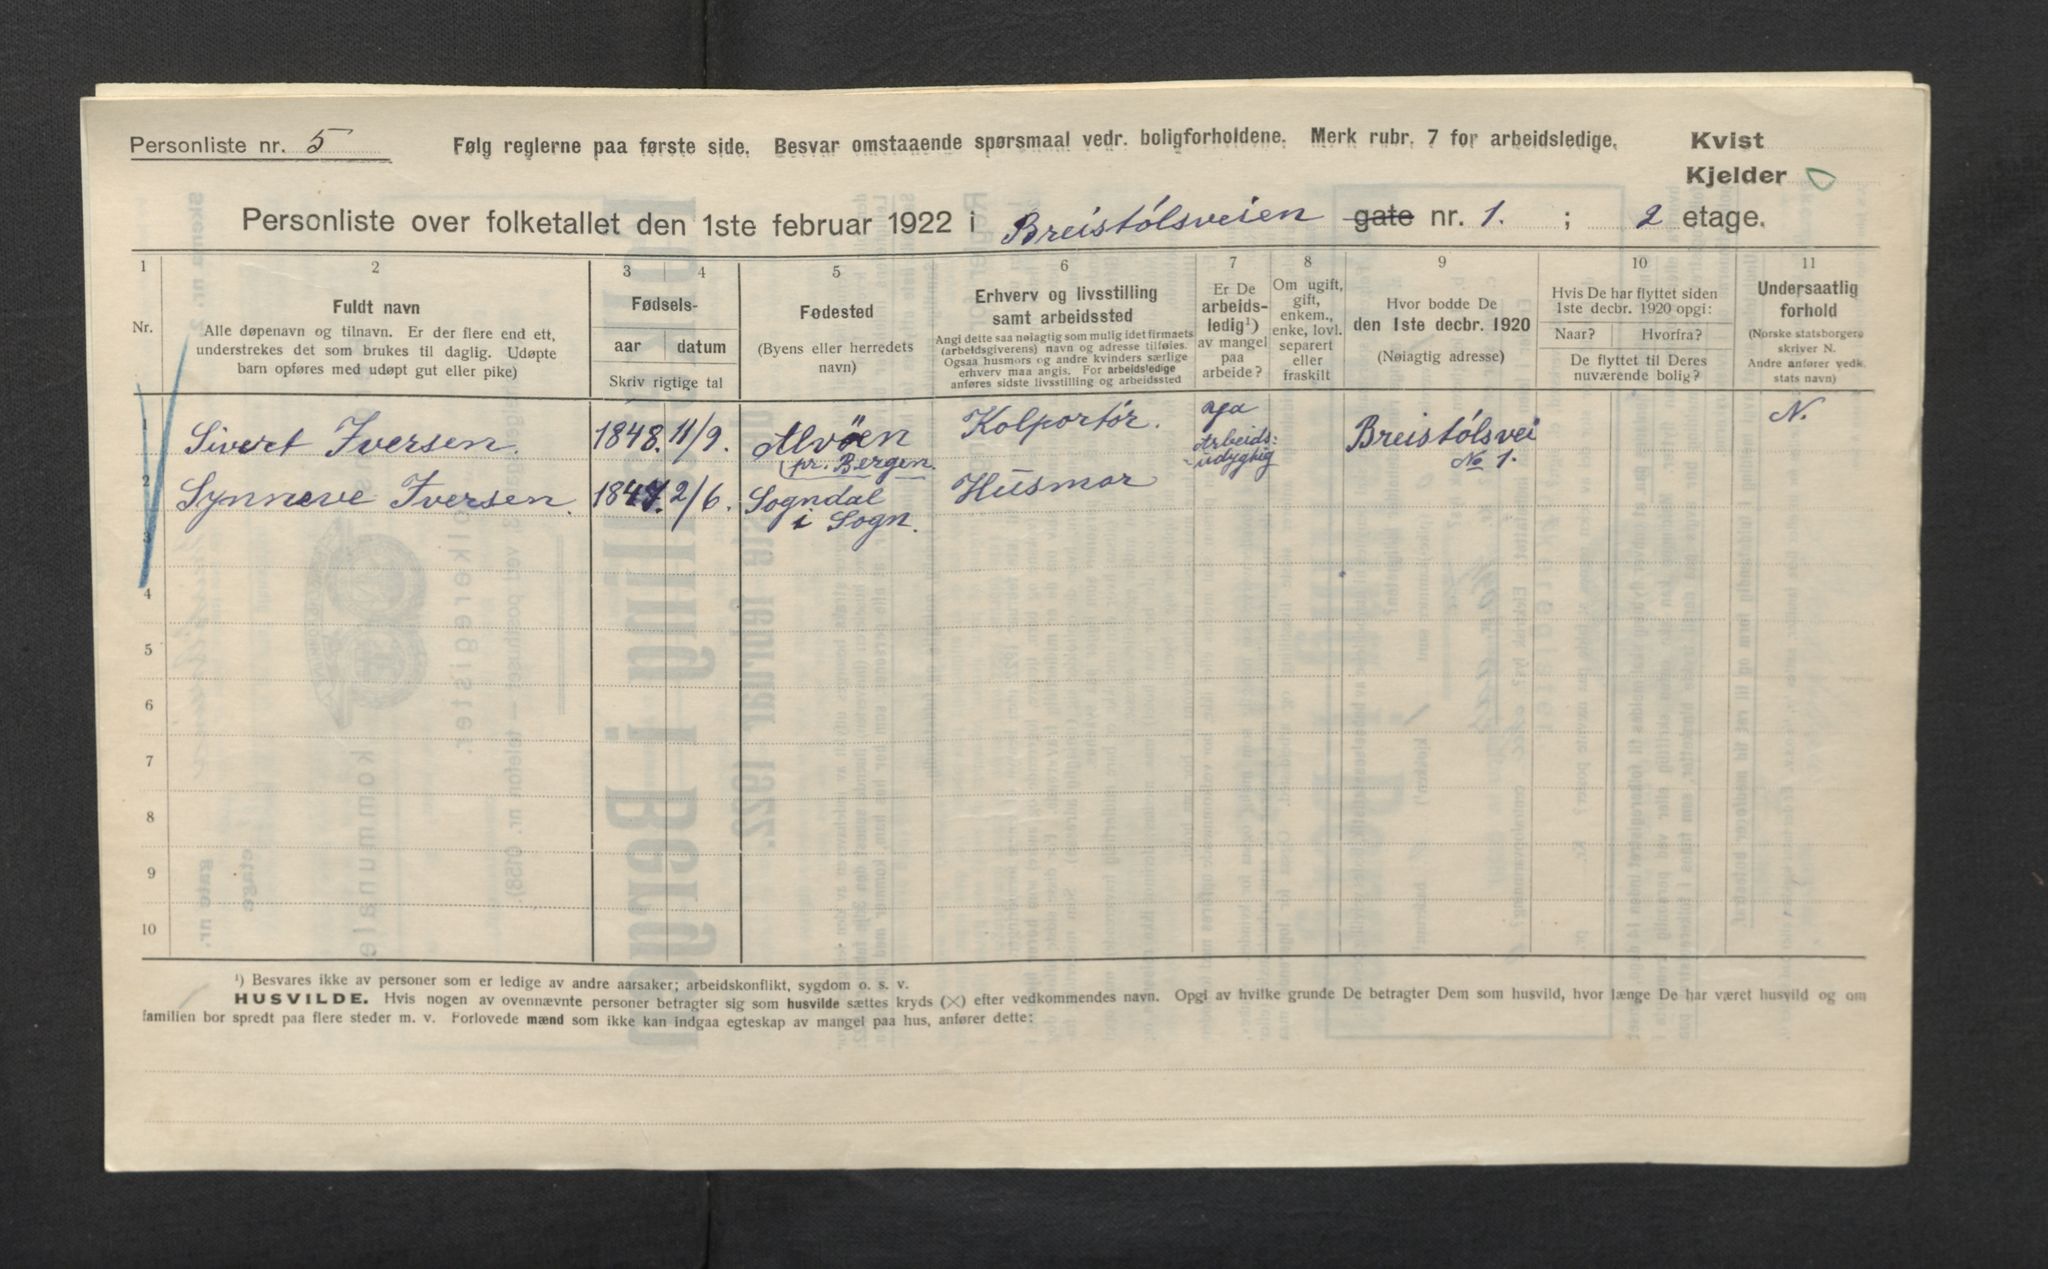 Personliste nr. 5
Følg reglerne paa første side. Besvar omstaaende spørsmaal vedr. boligforholdene. Merk rubr. 7 for arbeidsledige.
Kvist
Kjelder
Personliste over folketallet den 1ste februar 1922 i Breistølsveien gate nr. 1. ; 2 etage.
1 2 3 4 5 6 7 8 9 10 11
Nr.
Fuldt navn
Alle døpenavn og tilnavn. Er der flere end ett,
understrekes det som brukes til daglig. Udøpte
barn opføres med udøpt gut eller pike)
Fødsels-
aar datum
Skriv rigtige tal
Fødested
(Byens eller herredets
navn)
Erhverv og livsstilling
samt arbeidssted
Angi dette saa nøiagtig som mulig idet firmaets
(arbeidsgiverens) navn og adresse tilføies.
Ogsaa husmors og andre kvinders særlige
erhverv maa angis. For arbeidsledige
anføres sidste livsstilling og arbeidssted
Er De
arbeids-
ledig¹)
av mangel
paa
arbeide?
Om ugift,
gift,
enkem.,
enke, lovl.
separert
eller
fraskilt
Hvor bodde De
den 1ste decbr. 1920
(Nøiagtig adresse)
Hvis De har flyttet siden
1ste decbr. 1920 opgi:
Naar? Hvorfra?
De flyttet til Deres
nuværende bolig?
Undersaatlig
forhold
(Norske statsborgere
skriver N.
Andre anfører vedk.
stats navn)
1 Sivert Iversen. 1848. 11/9. Alvøen Kolportør. ya Breistølsvei N.
(pr. Bergen. Arbeids- udygtig No 1.
2 Synneve Iversen. 1847. 2/6. Sogndal Husmor
i Sogn.
3
4
5
6
7
8
9
10
¹) Besvares ikke av personer som er ledige av andre aarsaker; arbeidskonflikt, sygdom o. s. v.
HUSVILDE. Hvis nogen av ovennævnte personer betragter sig som husvilde sættes kryds (×) efter vedkommendes navn. Opgi av hvilke grunde De betragter Dem som husvild, hvor længe De har været husvild og om
familien bor spredt paa flere steder m. v. Forlovede mænd som ikke kan indgaa egteskap av mangel paa hus, anfører dette: